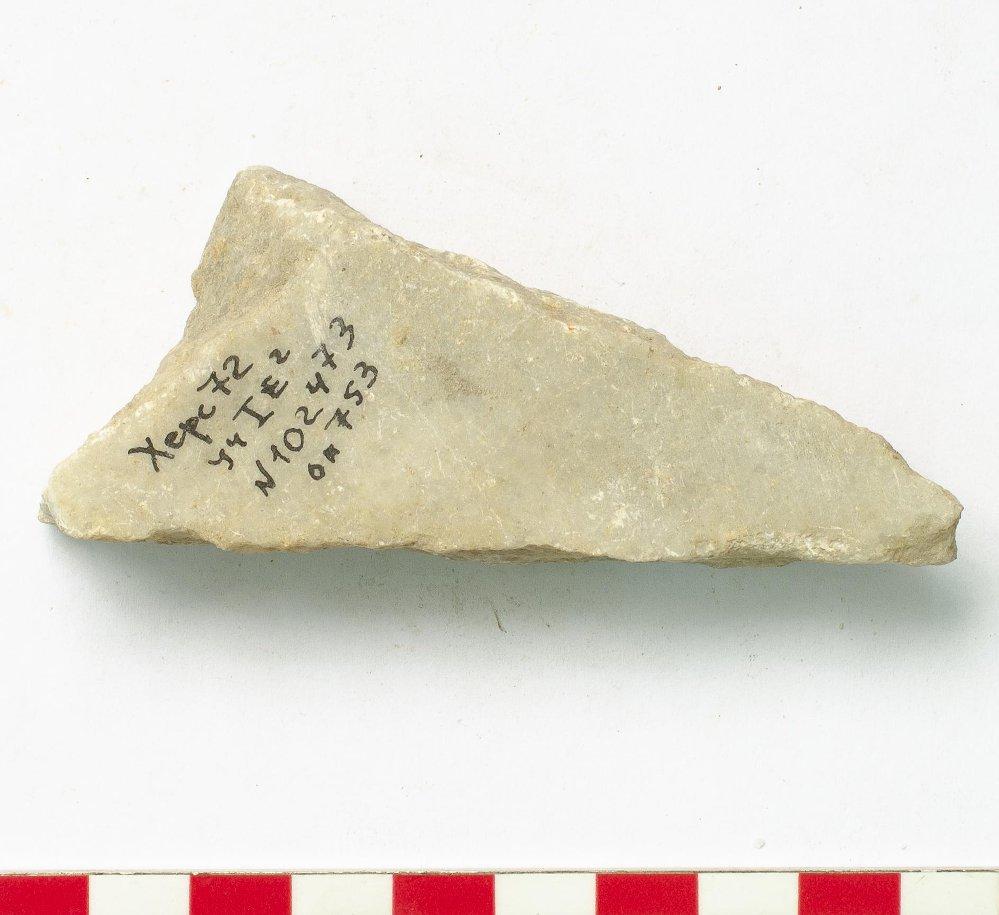 Херс 72
уч I Е 2
N 102473
оп 753